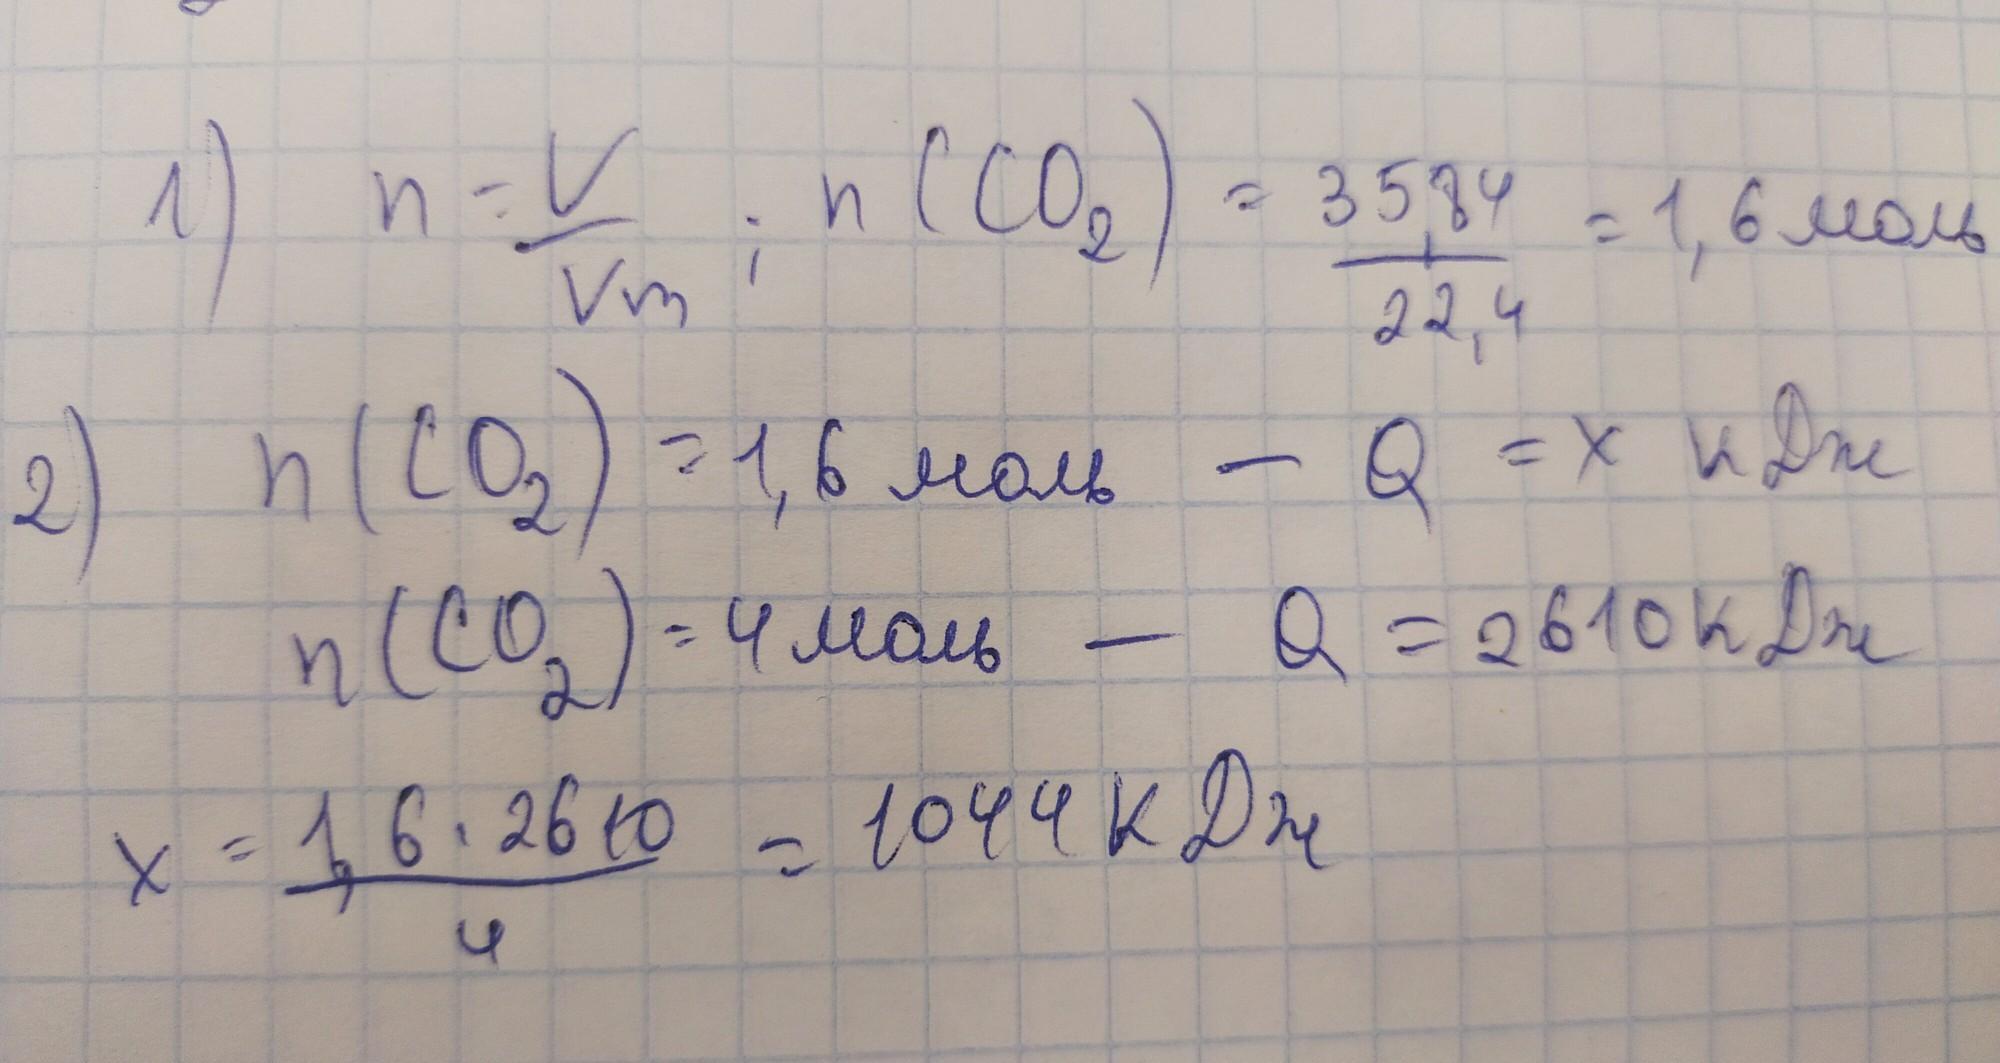 1) n = V/Vm ; n(CO₂) = 35,84/22,4 = 1,6 моль
2) n(CO₂) = 1,6 моль – Q = x кДж
n(CO₂) = 4 моль – Q = 2610 кДж
x = 1,6 · 2610/4 = 1044 кДж